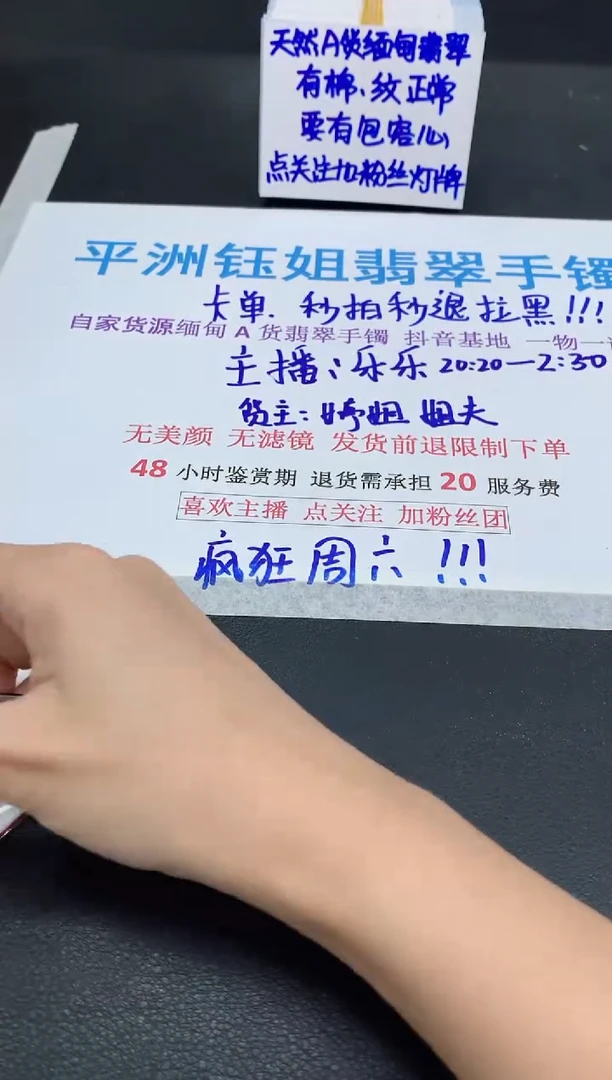 天然A货缅甸翡翠
有棉、纹正常
要有包容心
点关注加粉丝灯牌
平洲钰姐翡翠手镯
卡单、秒拍秒退拉黑!!!
自家货源缅甸 A 货翡翠手镯 抖音基地 一物一
主播:乐乐 20:20—2:30
货主: 姐 姐夫
无美颜 无滤镜 发货前退限制下单
48 小时鉴赏期 退货需承担 20 服务费
喜欢主播 点关注 加粉丝团
疯狂周六!!!